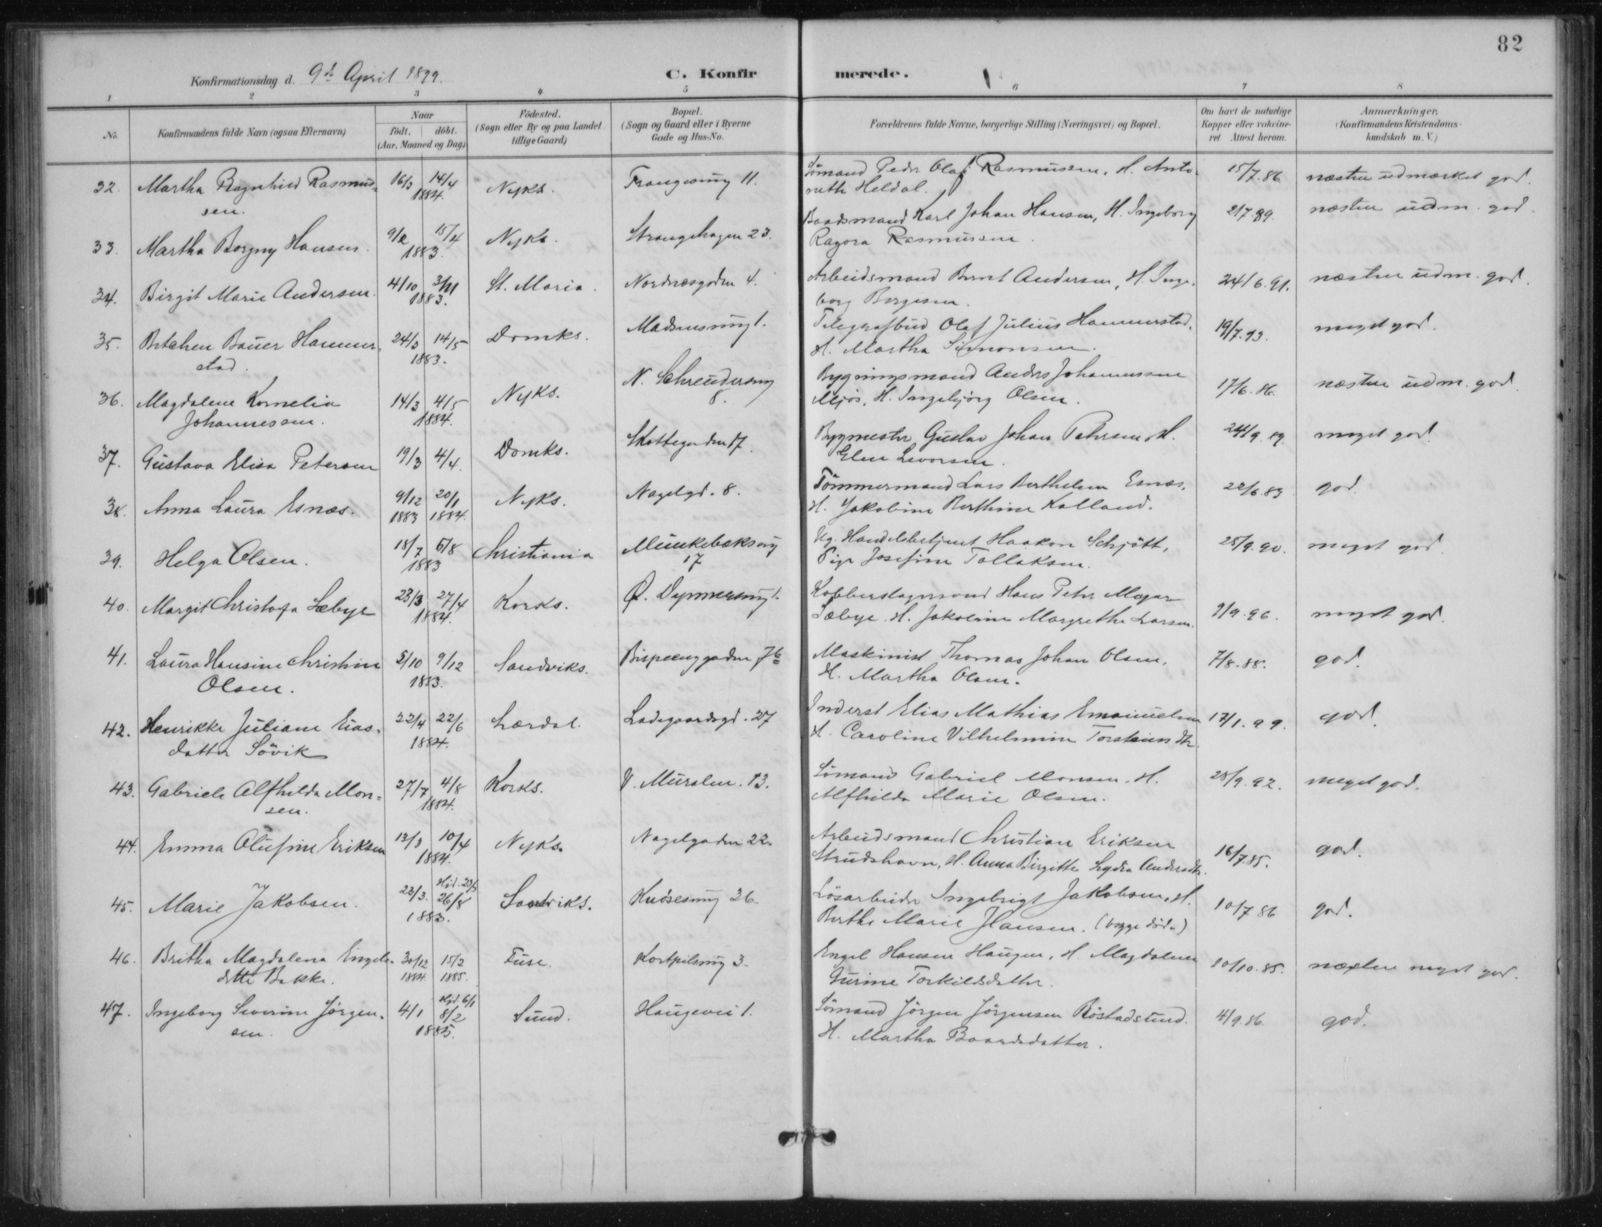 82
Konfirmationsdag d. 9de April 1899.
C. Konfirmerede.
1 2 3 4 5 6 7 8
No.
Konfirmandens fulde Navn (ogsaa Efternavn)
Naar
født. | døbt.
(Aar, Maaned og Dag)
Fødested.
(Sogn eller By og paa Landet
tillige Gaard)
Bopæl.
(Sogn og Gaard eller i Byerne
Gade og Hus-No.
Forældrenes fulde Navne, borgerlige Stilling (Næringsvei) og Bopæl.
Om havt de naturlige
Kopper eller vaksine-
ret. Attest herom.
Anmerkninger.
(Konfirmandens Kristendoms-
kundskab m. V.)
32. Martha Ragnhild Rasmus- 16/3 14/4 Nyks. 11. Sømand Peder Olaf Rasmussen, H. Anto- 15/7.86 næsten udmærket god.
sen. 1884. nette Heldal.
33. Martha Borgny Hansen 9/2 15/4 Nyks. Strangehagen 23. Baadsmand Karl Johan Hansen, H. Ingeborg 2/7 89. næsten udm. god.
1883. Ragora Rasmussen.
34. Birgit Marie Andersen. 4/10 3/11 St. Maria. Nordnæsgaden 4. Arbeidsmand Bernt Andersen, H. Inge- 24/6.91. næsten udm. god.
1883. borg Børgesen.
35. Betchen Bauer Hammer- 24/3 14/5 Domks. Madamsmug 1. Telegrafbud Olaf Julius Hammerstad. 19/7.93. meget god.
stad. 1883. H. Martha Simonsen.
36. Magdalene Kornelia 14/3 4/5 Nyks. N. Schreudersmug Bygningsmand Anders Johannessen 17/6.86. næsten udm. god.
Johannessen. 1884. 8. Mjøs, H. Ingebjørg Olsen.
37. Gustava Elisa Petersen 19/3 4/4. Domks. Skottegaden 17. Bygmester Gustav Johan Petersen, H. 24/9.89. meget god.
Elen Levorsen.
38. Anna Laura Esnæs. 9/12 20/1 Nyks. Nagelgd. 8. Tømmermand Lars Berthelsen Esnæs, 22/6.83 god.
1883 1884. H. Jakobine Berthine Kalland.
39. Helga Olsen. 18/7 5/8 Christiania Munkebæksmug Ug. Handelsbetjent Haakon Schjøtt, 25/9.90. meget god.
1883 17 Pige Josefine Tollaksen.
40. Margit Christofa Sæbye 23/3 27/4 Korsks. Ø. Dynnersmug 1. Kobberslagersvend Hans Peter Meyer 9/9.96. meget god.
1884. Sæbye, H. Jakobine Margrethe Larsen.
41. Laura Hansine Christine 5/10 9/12 Sandviks. Bispeenggaden 76 Maskinist Thomas Johan Olsen, 7/8.88. god.
Olsen. 1883. H. Martha Olsen.
42. Henrikke Juliane Elias- 22/4 22/6 Lærdal. Ladegaardsgd. 27 Inderst Elias Mathias Emanuelsen 17/1.99. god.
datter Søvik 1884. H. Caroline Vilhelmine Torsteinsdtr.
43. Gabriele Alfhilda Mon- 27/7 4/8 Korsks. V. Muralm. 13. Sømand Gabriel Monsen, H. 28/9.92. meget god.
sen. 1884. Alfhilda Marie Olsen.
44. Emma Olufine Eriksen 13/3 10/4 Nyks. Nagelgaden 22. Arbeidsmand Christian Eriksen 16/7.85. god.
1884. Strudshavn, H. Anna Birgitte Lydia Andersdtr.
45. Marie Jakobsen. 22/3. Hjd. 23/3 26/8 Sandviks. Knøsesmug 26. Løsarbeider Ingebrigt Jakobsen, H. 10/7 86 god.
1883. Berthe Marie Hansen. (begge døde)
46. Britha Magdalena Engels- 30/12 15/2 Fuse. Kortpilsmug 3. Engel Hansen Haugen, H. Magdalena 10/10.85. næsten meget god.
datter Bakke. 1884 1885. Gurine Torkildsdatter.
47. Ingeborg Severine Jørgen- 4/1 Hjd. 6/1 8/2 Sund. Haugevei 1. Sømand Jørgen Jørgensen Røstadstund. 4/9.86 god.
sen. 1885. H. Martha Baardsdatter.